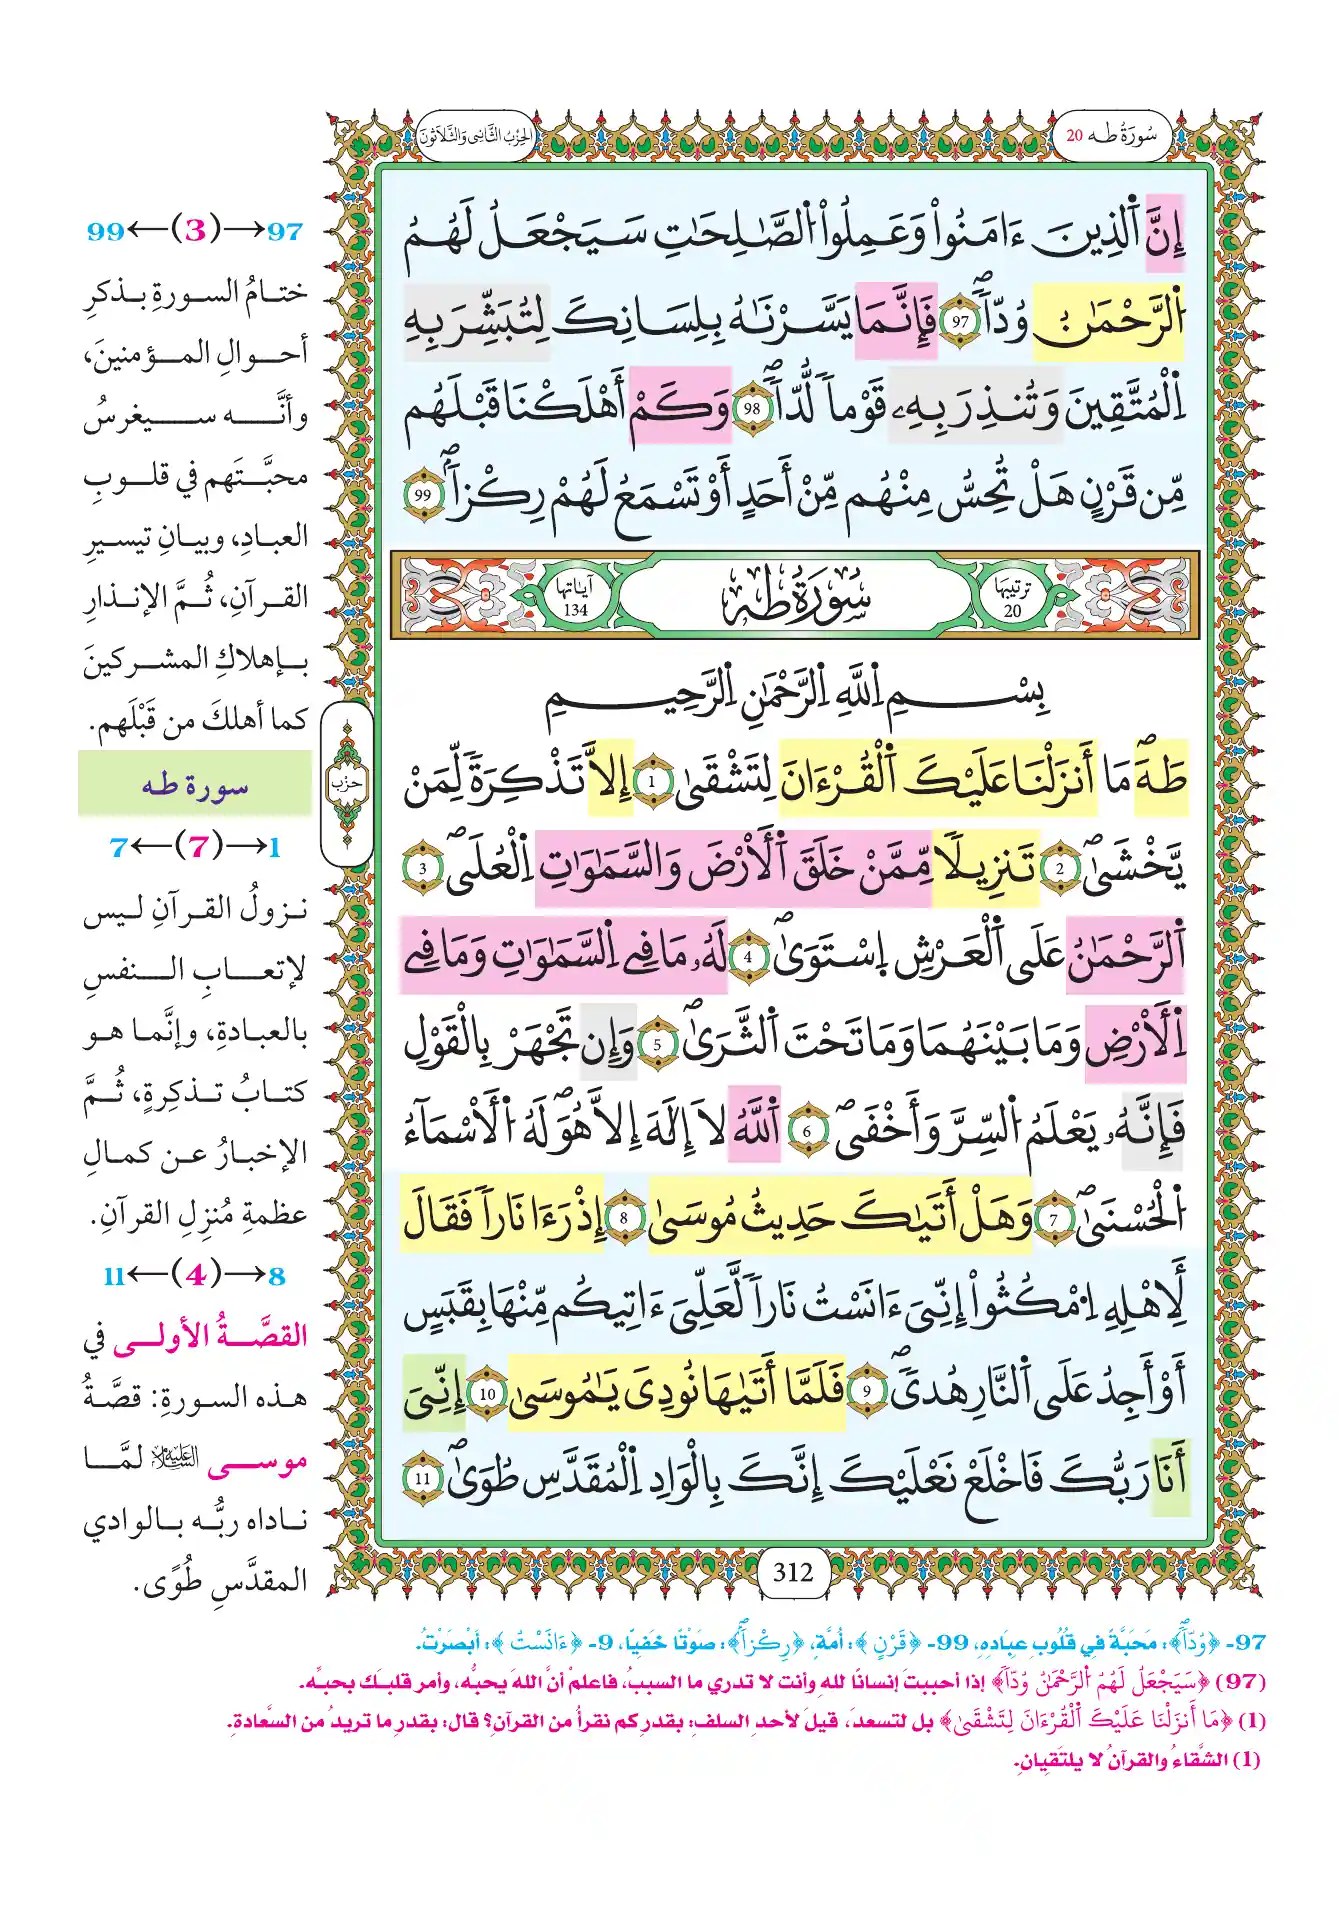 سُورَةُ طه 20
الحِزْبُ الثَّانِي وَالثَّلَاثُونَ
إِنَّ اَ۬لذِينَ ءَامَنُواْ وَعَمِلُواْ اُ۬لصَّٰلِحَٰتِ سَيَجْعَلُ لَهُمُ
اُ۬لرَّحْمَٰنُ وُدّاٗۖ 97 فَإِنَّمَا يَسَّرْنَٰهُ بِلِسَانِكَ لِتُبَشِّرَ بِهِ
اِ۬لْمُتَّقِينَ وَتُنذِرَ بِهِۦ قَوْماٗ لُّدّاٗۖ 98 وَكَمْ أَهْلَكْنَا قَبْلَهُم
مِّن قَرْنٍ هَلْ تُحِسُّ مِنْهُم مِّنْ أَحَدٍ أَوْ تَسْمَعُ لَهُمْ رِكْزاٗۖ 99
ترتيبها 20
سُورَةُ طه
آياتها 134
بِسْمِ اِ۬للَّهِ اِ۬لرَّحْمَٰنِ اِ۬لرَّحِيمِ
طَهَۖ مَا أَنزَلْنَا عَلَيْكَ اَ۬لْقُرْءَانَ لِتَشْقَىٰ 1 إِلَّا تَذْكِرَةٗ لِّمَنْ
يَّخْشَىٰۖ 2 تَنزِيلاٗ مِّمَّنْ خَلَقَ اَ۬لْأَرْضَ وَالسَّمَٰوَٰتِ اِ۬لْعُلَىۖ 3
اَ۬لرَّحْمَٰنُ عَلَى اَ۬لْعَرْشِ اِ۪سْتَوَىٰۖ 4 لَهُۥ مَا فِے اِ۬لسَّمَٰوَٰتِ وَمَا فِے
اِ۬لْأَرْضِ وَمَا بَيْنَهُمَا وَمَا تَحْتَ اَ۬لثَّرَىٰۖ 5 وَإِن تَجْهَرْ بِالْقَوْلِ
فَإِنَّهُۥ يَعْلَمُ اُ۬لسِّرَّ وَأَخْفَىۖ 6 اَ۬للَّهُ لَا إِلَٰهَ إِلَّا هُوَۖ لَهُ اُ۬لْأَسْمَآءُ
اُ۬لْحُسْنَىٰۖ 7 وَهَلْ أَتَىٰكَ حَدِيثُ مُوسَىٰ 8 إِذْ رَءَا نَاراٗ فَقَالَ
لِأَهْلِهِ اِ۟مْكُثُواْ إِنِّيَ ءَانَسْتُ نَاراٗ لَّعَلِّيَ ءَاتِيكُم مِّنْهَا بِقَبَسٍ
أَوْ أَجِدُ عَلَى اَ۬لنَّارِ هُدىٗۖ 9 فَلَمَّا أَتَىٰهَا نُودِيَ يَٰمُوسَىٰ 10 إِنِّيَ
أَنَا رَبُّكَ فَاخْلَعْ نَعْلَيْكَ إِنَّكَ بِالْوَادِ اِ۬لْمُقَدَّسِ طُوَىٰۖ 11
حزب
312
97→(3)←99
ختـامُ السـورةِ بـذكرِ
أحـوالِ المـؤمنينَ،
وأنَّـه سـيغرسُ
محبَّـتَهم في قلـوبِ
العبـادِ، وبيـانِ تيسـيرِ
القـرآنِ، ثُـمَّ الإنـذارِ
بـإهلاكِ المشـركينَ
كما أهلكَ من قَبْلَهم.
سورة طه
1→(7)←7
نـزولُ القـرآنِ لـيس
لإتعـابِ الـنفسِ
بالعبادةِ، وإنَّمـا هـو
كتـابُ تـذكِرةٍ، ثُـمَّ
الإخبـارُ عـن كمـالِ
عظمةِ مُنزِلِ القرآنِ.
8→(4)←11
القصَّـةُ الأولـى في
هـذه السـورةِ: قصَّـةُ
موسـى عليه السلام لمَّـا
نـاداه ربُّـه بـالوادي
المقدَّسِ طُوًى.
97- ﴿وُدّاٗۖ﴾: مَحَبَّةً فِي قُلُوبِ عِبَادِهِ، 99- ﴿قَرْنٍ﴾: أُمَّةٍ، ﴿رِكْزاٗۖ﴾: صَوْتًا خَفِيًّا، 9- ﴿ءَانَسْتُ﴾: أَبْصَرْتُ.
(97) ﴿سَيَجْعَلُ لَهُمُ اُ۬لرَّحْمَٰنُ وُدّاٗ﴾ إذا أحببتَ إنسانًا للهِ وأنت لا تدري ما السببُ، فاعلمْ أنَّ اللهَ يحبُّه، وأمر قلبَك بحبِّه.
(1) ﴿مَا أَنزَلْنَا عَلَيْكَ اَ۬لْقُرْءَانَ لِتَشْقَىٰ﴾ بل لتسعدَ، قيلَ لأحدِ السلفِ: بقدرِ كم نقرأُ من القرآنِ؟ قال: بقدرِ ما تريدُ من السَّعادةِ.
(1) الشَّقاءُ والقرآنُ لا يلتَقِيانِ.